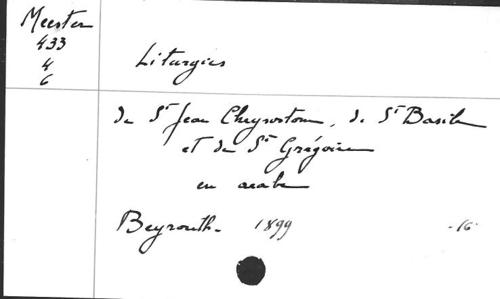 Meester
433
4
6
Liturgies
de St Jean Chrysostome, de St Basile
et de St Grégoire
en arabe
Beyrouth. 1899 -16°